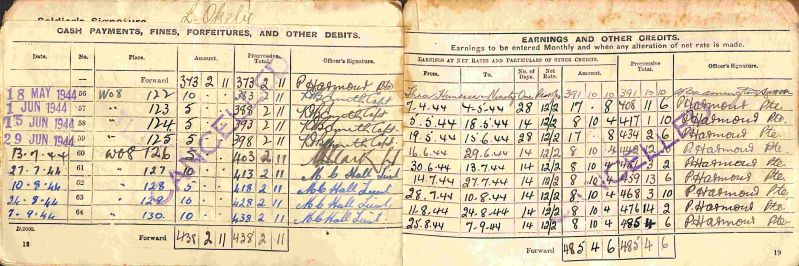 Soldier's Signature
CASH PAYMENTS, FINES, FORFEITURES, AND OTHER DEBITS.
Date. No. Place. Amount. Progressive Total. Officer's Signature.
Forward 373 2 11 373 2 11 P Harmour Pte
18 MAY 1944 56 W08 122 10
1 JUN 1944 57 " 123 5
15 JUN 1944 58 " 124 5 393 2 11
29 JUN 1944 59 " 125 5 398 2 11
13.7.44 60 W08 126 5 403 2 11
27.7.44 61 " 127 10 413 2 11 M.C Hall Lieut
10.8.44 62 " 128 5 418 2 11 M.C Hall Lieut
24.8.44 63 " 129 10 428 2 11 M.C Hall Lieut
7.9.44 64 " 130. 10 438 2 11 M.C Hall Lieut
CANCELLED
Forward 438 2 11 438 2 11
18
EARNINGS AND OTHER CREDITS.
Earnings to be entered Monthly and when any alteration of net rate is made.
EARNINGS AT NET RATES AND PARTICULARS OF OTHER CREDITS.
From. To. No. of Days. Net Rate. Amount. Progressive Total. Officer's Signature.
Three Hundred Ninety One 391 10 10 391 10 10
7.4.44 4.5.44 28 12/2 17 - 8 408 11 6 P Harmour Pte.
5.5.44 18.5.44 14 12/2 8 10 4 417 1 10 P Harmour Pte.
19.5.44 15.6.44 28 12/2 17 - 8 434 2 6 P Harmour Pte.
16.6.44 29.6.44 14 12/2 8 10 4 P Harmour Pte.
30.6.44 13.7.44 14 12/2 8 10 4 P Harmour Pte.
14.7.44 27.7.44 14 12/2 8 10 4 459 13 6 P Harmour Pte.
28.7.44 10.8.44 14 12/2 8 10 4 468 3 10 P Harmour Pte.
11.8.44 24.8.44 14 12/2 8 10 4 476 14 2 P Harmour Pte.
25.8.44 7.9.44 14 12/2 8 10 4 485 4 6 P Harmour Pte.
CANCELLED
Forward 485 4 6 485 4 6
19